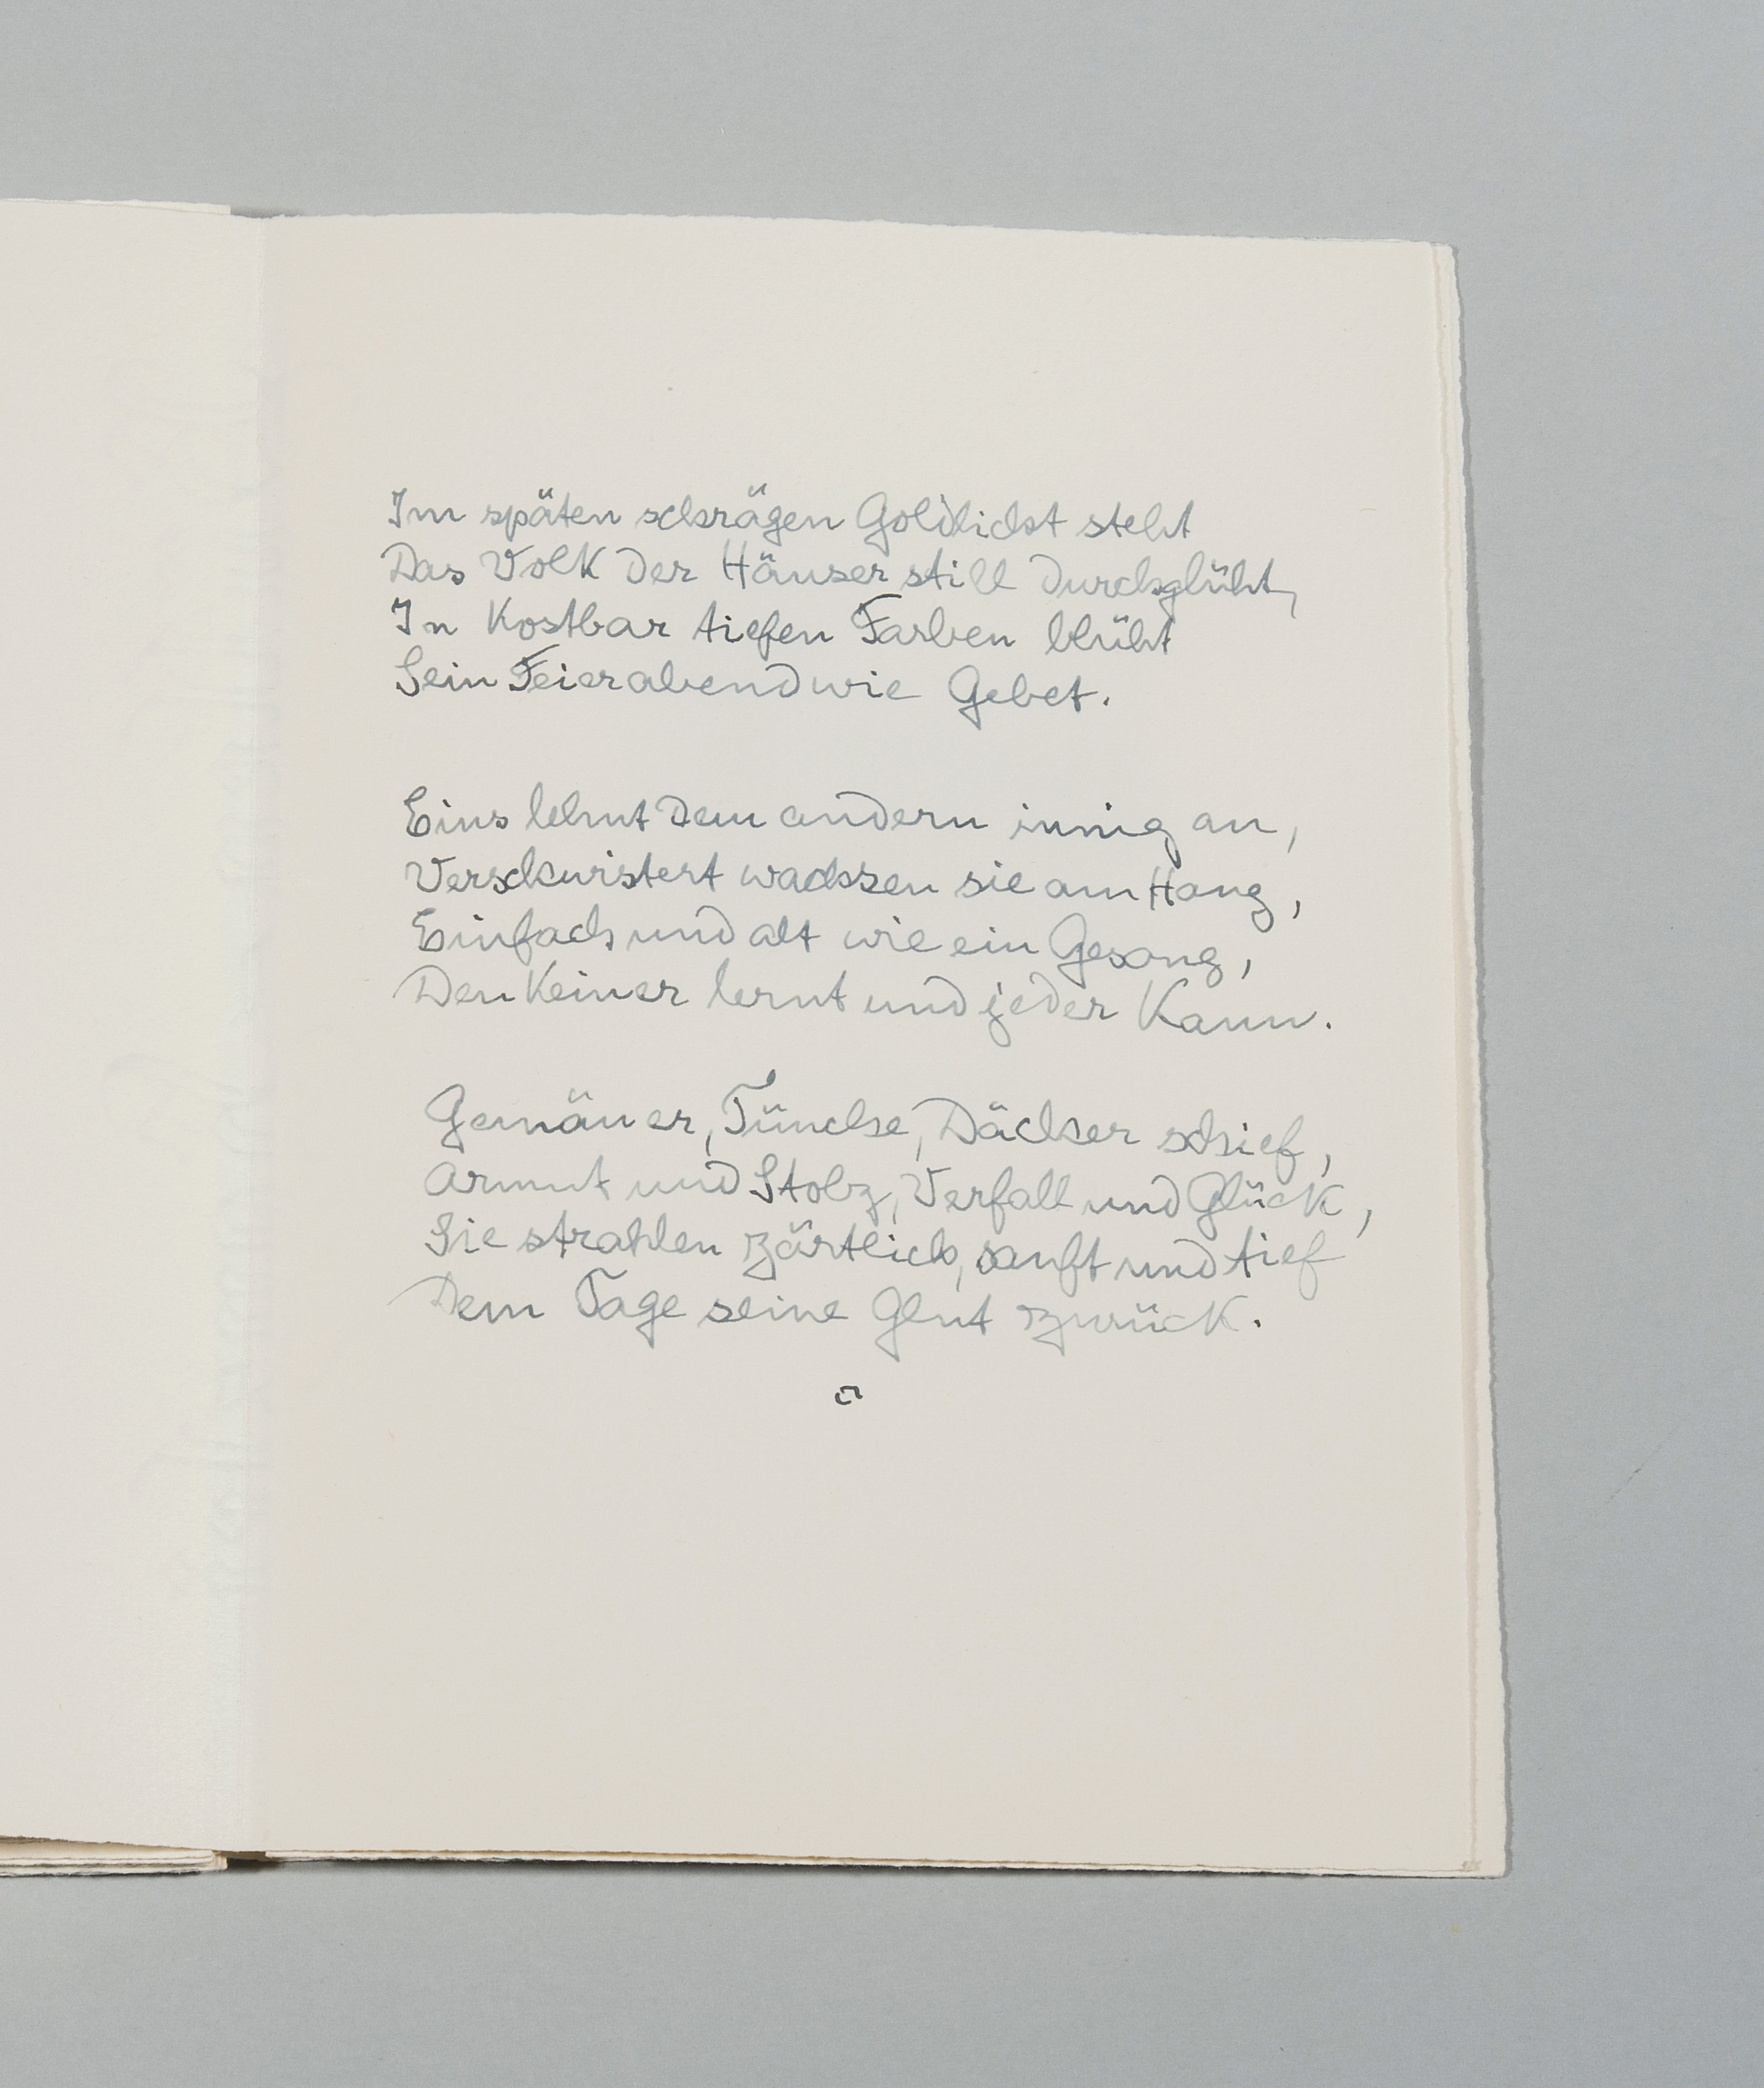 Im späten schrägen Goldlicht steht
Das Volk der Häuser still durchglüht,
In kostbar tiefen Farben blüht
Sein Feierabend wie Gebet.
Eins lehnt dem andern innig an,
Verschwistert wachsen sie am Hang,
Einfach und alt wie ein Gesang,
Den Keiner lernt und jeder kann.
Gemäuer, Tünche, Dächer schief,
Armut und Stolz, Verfall und Glück,
Sie strahlen zärtlich, sanft und tief
Dem Tage seine Glut zurück.